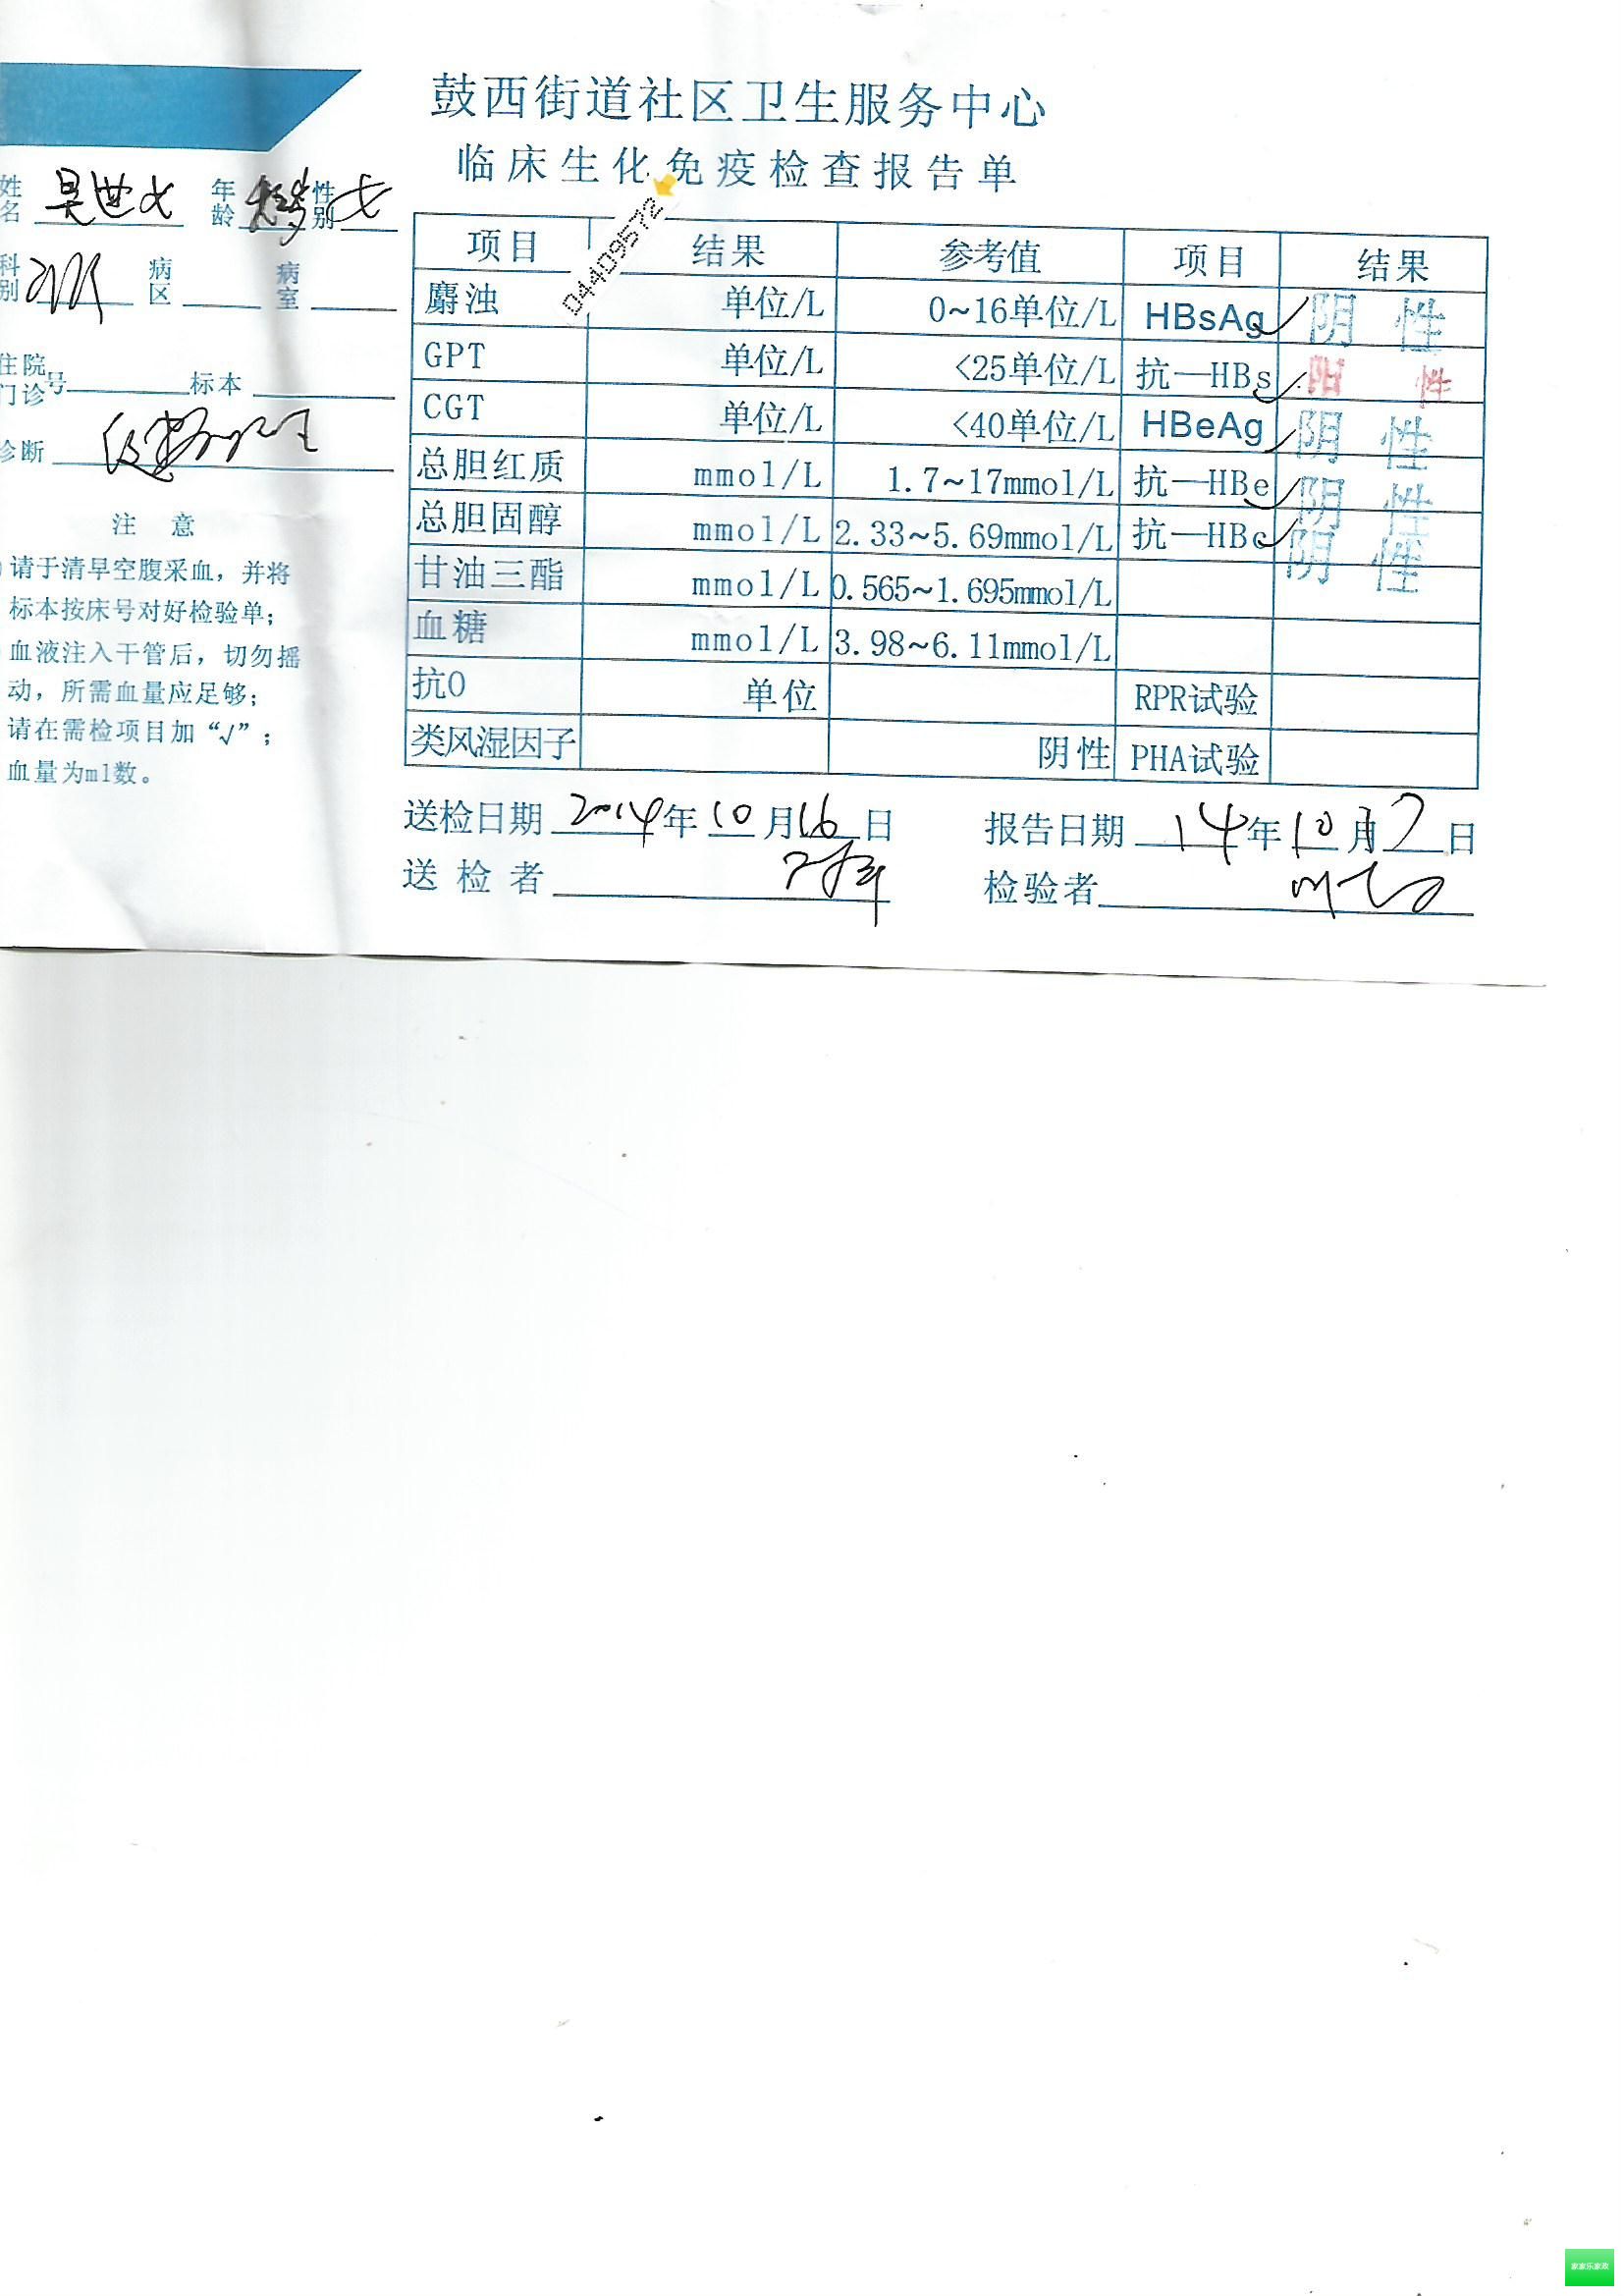 鼓西街道社区卫生服务中心
临床生化免疫检查报告单
姓名 年龄 性别
科别 病区 病室
住院门诊号 标本
诊断
注 意
请于清早空腹采血，并将
标本按床号对好检验单；
血液注入干管后，切勿摇
动，所需血量应足够；
请在需检项目加“√”；
血量为ml数。
04409572
项目 结果 参考值 项目 结果
麝浊 单位/L 0~16单位/L HBsAg✓ 阴 性
GPT 单位/L <25单位/L 抗—HBs✓ 阳 性
CGT 单位/L <40单位/L HBeAg✓ 阴 性
总胆红质 mmol/L 1.7~17mmol/L 抗—HBe✓ 阴 性
总胆固醇 mmol/L 2.33~5.69mmol/L 抗—HBc✓ 阴 性
甘油三酯 mmol/L 0.565~1.695mmol/L
血糖 mmol/L 3.98~6.11mmol/L
抗O 单位 RPR试验
类风湿因子 阴性 PHA试验
送检日期 2014年10月16日 报告日期 14年10月 日
送检者 检验者